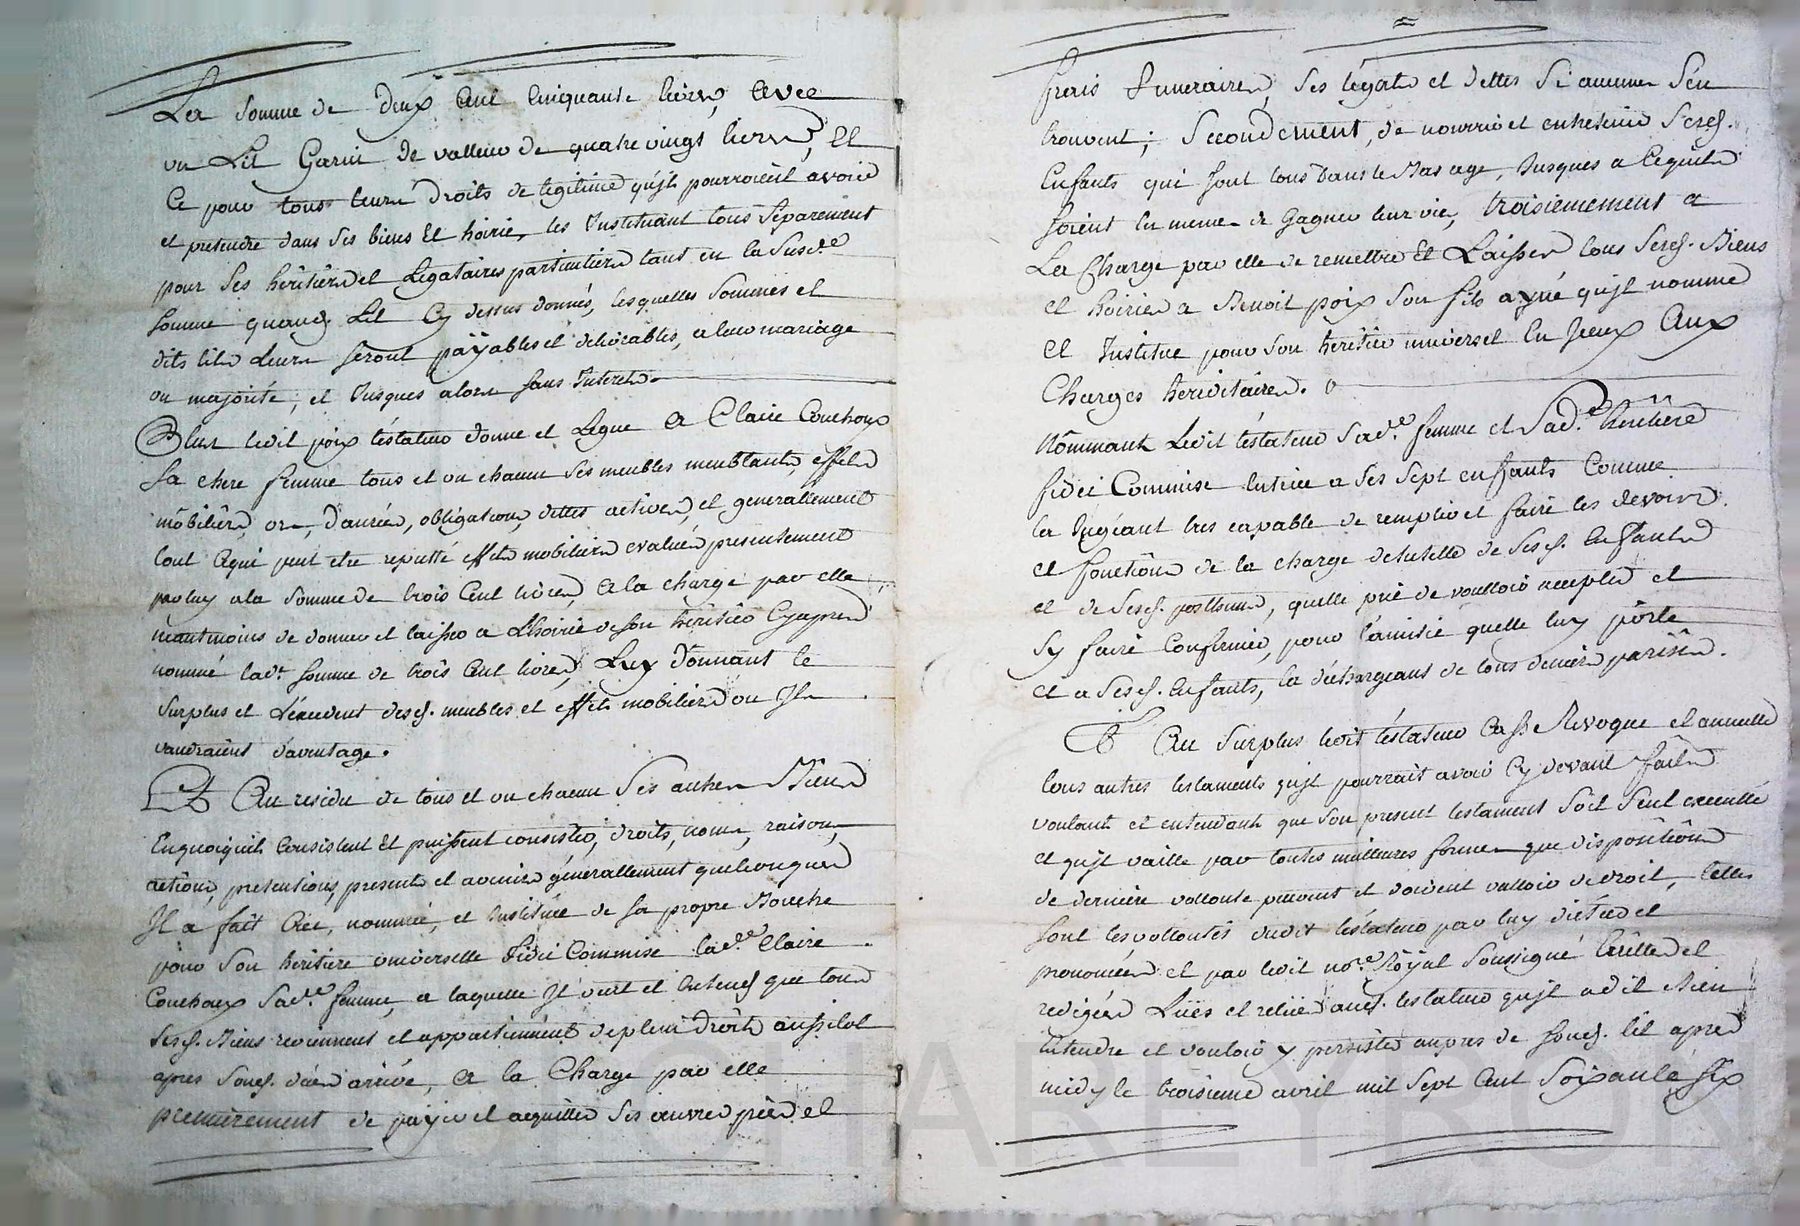 La somme de deux cent cinquante livres, avec
un Lit Garni de valleur de quatre vingt livres, Et
Ce pour tous leurs droits de legitime qu'jls pourroient avoir
et pretendre dans ses biens Et hoirie, les Instituant tous séparement
pour ses héritiers et Légataires particuliers tant en la Susd.e
somme quaud. Lit Cy dessus donnés, lesquelles sommes et
dits lits Leurs seront payables et délivrables, a leur mariage
ou majorité, et Jusques alors sans Interets.
Plus ledit poix téstateur donne et Legue a Claire Couchoux
sa chere femme tous et un chacun ses meubles meublants, effets
mobiliers, or, danrées, obligations, dettes actives, et generallement
tout cequi peut etre reputté effets mobiliers evalués presentement
par luy a la somme de trois Cent livres, a la charge par elle
neantmoins de donner et laisser a Lhoirie de son héritier Cyapres
nommé lad.te somme de trois Cent livres, Luy donnant le
surplus et L'éxcedent desd. meubles et effets mobiliers ou Jls
vaudraient d'avantage.
Et Au residu de tous et un chacun Ses autres Biens
Enquoiqu'ils Consistent Et puissent consister, droits, noms, raisons,
actions, pretentions, presents et avenirs généralement quelconques
Jl a fait Créé, nommée, et Instituée de sa propre Bouche
pour son héritiere universelle fidei Commise lad.e Claire
Couchoux Sad.e femme, a laquelle Jl veut et Entend que tous
sesd. Biens reviennent et appartiennent de plein Droit aussitot
apres soud. décès arrivé, a la Charge par elle
premièrement de payer et acquitter ses œuvres pies et
frais funeraires, ses légats et dettes si aucuns s'en
trouvent; Secondement, de nourrir et entretenir sesd.
Enfants qui sont tous dans le Bas age, Jusques a cequ'ils
soient en meme de Gagner leur vie, troisiemement a
La Charge par elle de remettre Et Laisser tous sesd. Biens
et hoirie a Benoit poix son fils ayné qu'jl nomme
et Institue pour son héritier universel En Jceux aux
Charges héréditaires.
Nommant Ledit téstateur sad.e femme et sad.e héritière
fidei Commise tutrice a ses sept enfants Comme
la Jugéant tres capable de remplir et faire les devoirs
et fonctions de la charge de tutelle de sesd. Enfants
et de sesd. posthume, quelle prie de voulloir accepter et
sy faire Confirmer, pour l'amitié quelle luy porte
et a sesd. Enfants, la déchargeant de tous
Et Au surplus ledit téstateur Casse Revoque et annulle
tous autres testaments qujl pourrait avoir Cy devant faits
voulant et entendant que son present testament soit seul executté
et qujl vaille par toutes meilleures formes que dispositions
de derniere vollonté peuvent et doivent valloir de droit, telles
sont les vollontés dudit téstateur par luy dictées et
prononcées et par ledit no.re Royal soussigné Ecrittes et
redigées Lües et relües aud. testateur qujl a dit Bien
entendre et vouloir y persister aupres de soud. lit apres
midy le troisieme avril mil sept cent soixante six
CHAREYRON